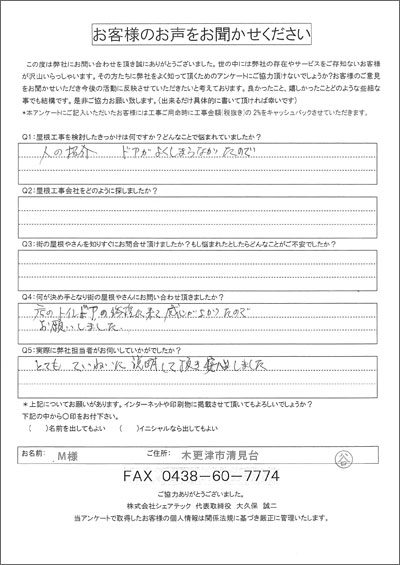 お客様のお声をお聞かせください
この度は弊社にお問い合わせを頂き誠にありがとうございました。世の中には弊社の存在やサービスをご存知ないお客様
が沢山いらっしゃいます。その方たちに弊社をよく知って頂くためのアンケートにご協力頂けないでしょうか?お客様のご意見
をお聞かせいただき今後の活動に反映させていただきたいと考えております。良かったこと、嬉しかったことどのような些細な
事でも結構です。是非ご協力お願い致します。(出来るだけ具体的に書いて頂ければ幸いです)
*本アンケートにご記入いただいたお客様には工事ご用命時に工事金額(税抜き)の2%をキャッシュバックさせていただきます。
Q1:屋根工事を検討したきっかけは何ですか?どんなことで悩まれていましたか?
人の紹介 ドアがよくしまらなかったので
Q2:屋根工事会社をどのように探しましたか?
Q3:街の屋根やさんを知りすぐにお問合せ頂けましたか?もし悩まれたとしたらどんなことがご不安でしたか?
Q4:何が決め手となり街の屋根やさんにお問い合わせ頂きましたか?
トイレドアの修理に来て感じがよかったので
お願いしました
Q5:実際に弊社担当者がお伺いしていかがでしたか?
とても ていねいに説明して頂き しました
*上記についてお願いがあります。インターネットや印刷物に掲載させて頂いてもよろしいでしょうか?
下記の中から〇印をお付下さい。
( )名前を出してもよい ( )イニシャルなら出してもよい
お名前: M様 ご住所: 木更津市清見台
谷
FAX 0438-60-7774
ご協力ありがとうございました。
株式会社シェアテック 代表取締役 大久保 誠二
当アンケートで取得したお客様の個人情報は関係法規に基づき厳正に管理いたします。